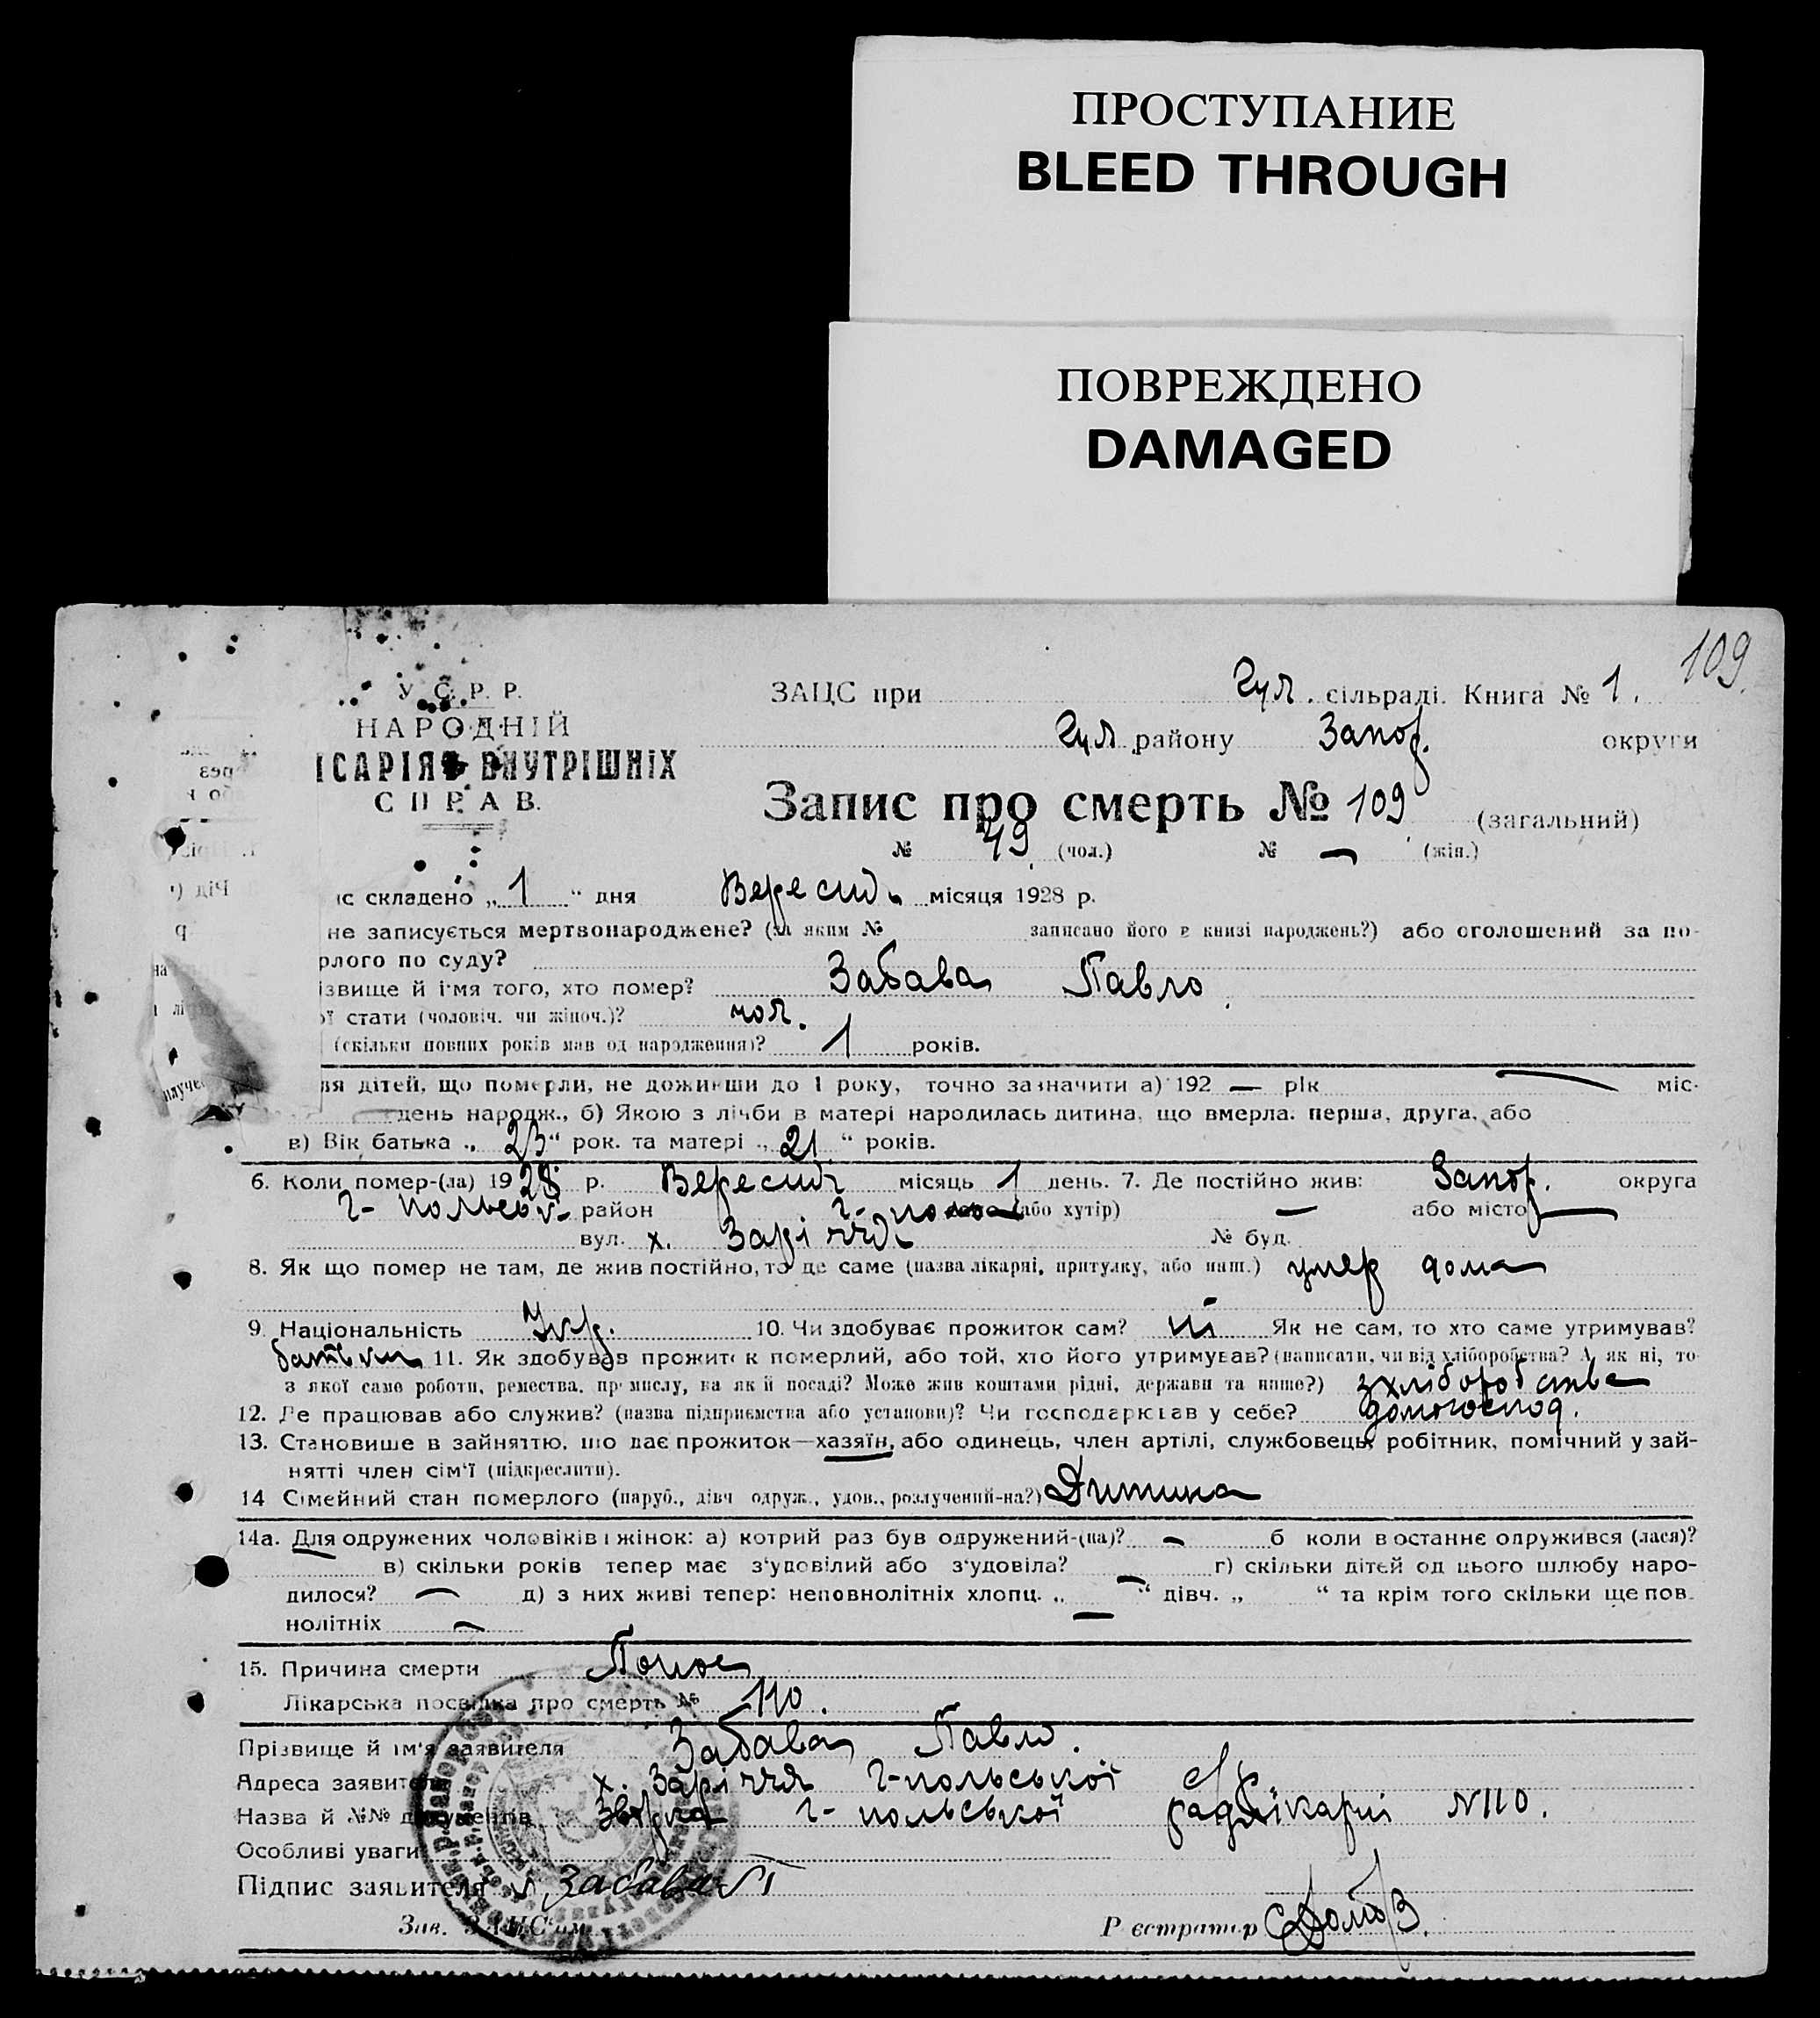 ПРОСТУПАНИЕ
BLEED THROUGH
ПОВРЕЖДЕНО
DAMAGED
109.
У. С. Р. Р.
НАРОДНІЙ
ІСАРІЯТ ВНУТРІШНІХ
СПРАВ.
ЗАЦС при Гул. сільраді. Книга № 1.
Гул. району Запор. округи
Запис про смерть № 109 (загальний)
№ 49 (чол.) № — (жін.)
ис складено „ 1 “ дня Вересня місяця 1928 р.
не записується мертвонароджене? (за яким № записано його в книзі народжень?) або оголошений за по-
рлого по суду?
ізвище й ім'я того, хто помер? Забава Павло.
ої стати (чоловіч. чи жіноч.)? чол.
(скільки повних років мав од народження)? 1 років.
ля дітей, що померли, не доживши до 1 року, точно зазначити а) 192 — рік — міс.
день народж., б) Якою з лічби в матері народилась дитина, що вмерла: перша, друга, або
в) Вік батька „ 23 “ рок. та матері „ 21 “ років.
6. Коли помер-(ла) 1928 р. Вересня місяць 1 день. 7. Де постійно жив: Запор. округа
район (або хутір) — або місто —
вул. х. Заріччя № буд.
8. Як що помер не там, де жив постійно, то де саме (назва лікарні, притулку, або инш.) умер дома
9. Національність Укр. 10. Чи здобуває прожиток сам? ні Як не сам, то хто саме утримував?
батьки 11. Як здобував прожиток померлий, або той, хто його утримував? (написати, чи від хліборобства? А як ні, то
з якої саме роботи, ремества, промислу, на якій посаді? Може жив коштами рідні, держави та инше?) з хліборобства
12. Де працював або служив? (назва підприємства або установи)? Чи господарював у себе? домогоспод.
13. Становище в зайняттю, що дає прожиток—хазяїн, або одинець, член артілі, службовець, робітник, помічний у зай-
нятті член сім'ї (підкреслити).
14 Сімейний стан померлого (паруб., дівч одруж., удов., розлучений-на?) Дитина
14а. Для одружених чоловіків і жінок: а) котрий раз був одружений-(на)? — б коли востаннє одружився (лася)?
в) скільки років тепер має з'удовілий або з'удовіла? г) скільки дітей од цього шлюбу наро-
дилося? — д) з них живі тепер: неповнолітніх хлопц. „ — “ дівч. „ “ та крім того скільки ще пов.
нолітніх —
15. Причина смерти Понос
Лікарська посвідка про смерть № 110.
Прізвище й ім'я заявителя Забава Павло.
Адреса заявителя х. Заріччя г-польської с/р
Назва й №№ документів г-польської радлікарні N110.
Особливі уваги
Підпис заявителя Забава П
Зав. ЗАЦС'ом Реєстратор